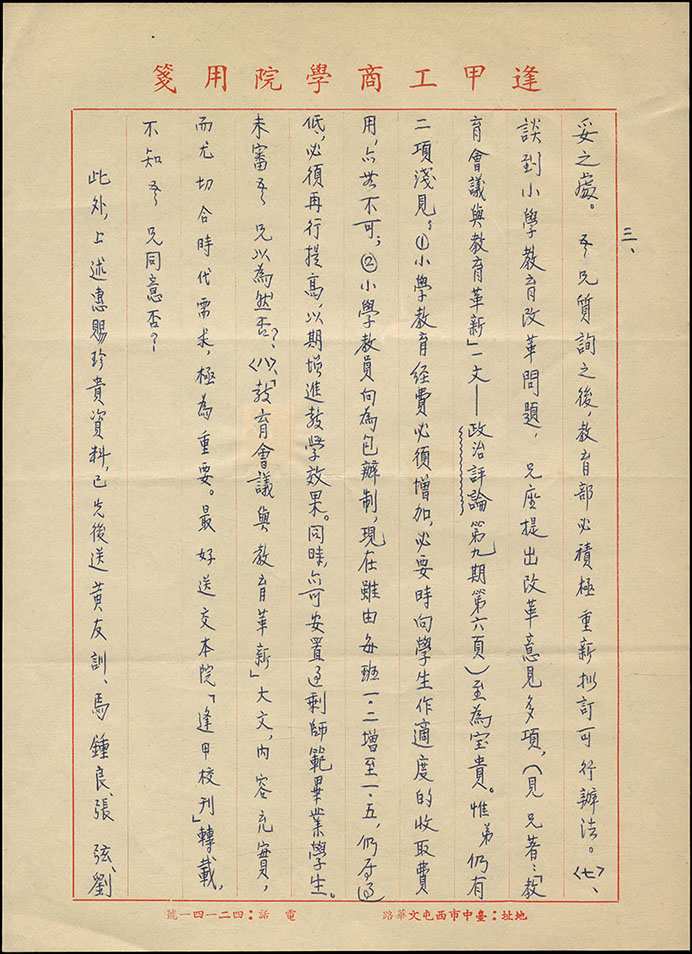 逢甲工商學院用箋
三、
妥之處。吾兄質詢之後，教育部必積極重新擬訂可行辦法。〈七〉、
談到小學教育改革問題，兄座提出改革意見多項，（見兄著：「教
育會議與教育革新」一文——政治評論第九期第六頁）至為宝貴。惟弟仍有
二項淺見：①小學教育経費必須增加，必要時向學生作適度的收取費
用，亦無不可；②小學教員向為包辦制，現在雖由每班一．二增至一．五，仍屬過
低，必須再行提高，以期增進教學效果。同時，亦可安置過剩師範畢業學生。
未審吾兄以為然否？〈八〉、「教育會議與教育革新」大文，內容充實，
而尤切合時代需求，極為重要。最好送交本院「逢甲校刊」轉載，
不知吾兄同意否？
此外，上述惠賜珍貴資料，已先後送黃友訓、馬鍾良、張弦、劉
地址：臺中市西屯文華路　電話：四二一四一號